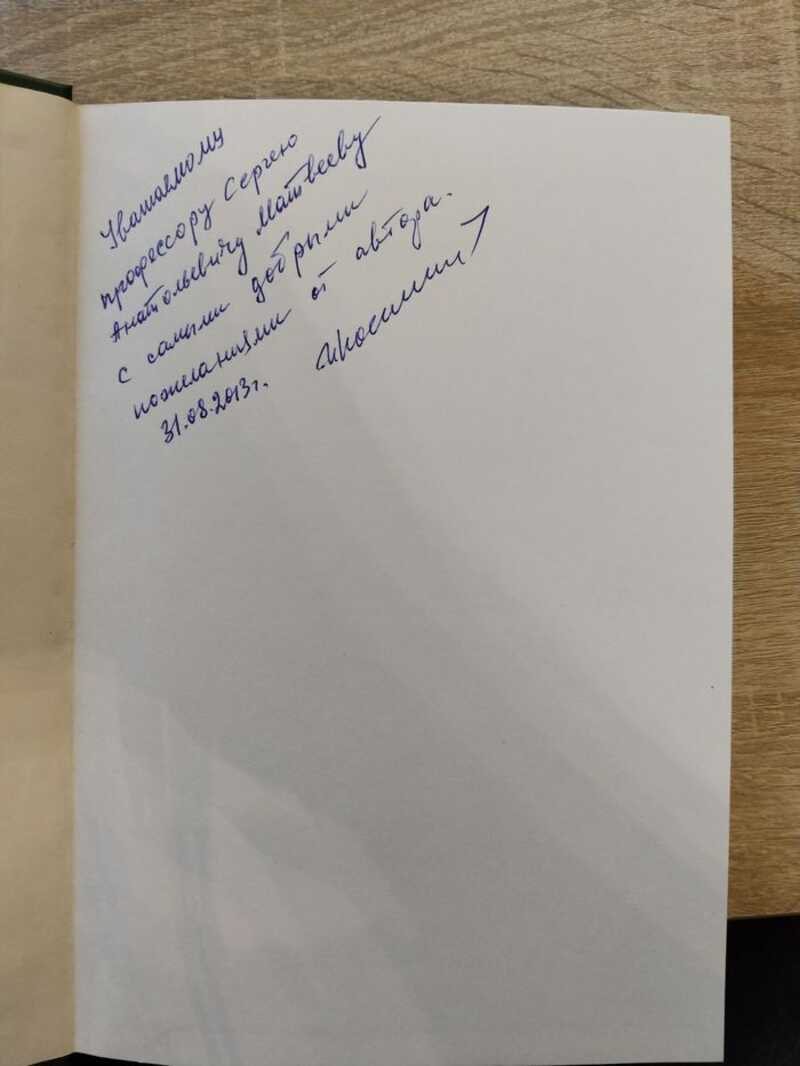 Уважаемому
профессору Сергею
Анатольевичу Матвееву
с самыми добрыми
пожеланиями от автора.
31.08.2013г.